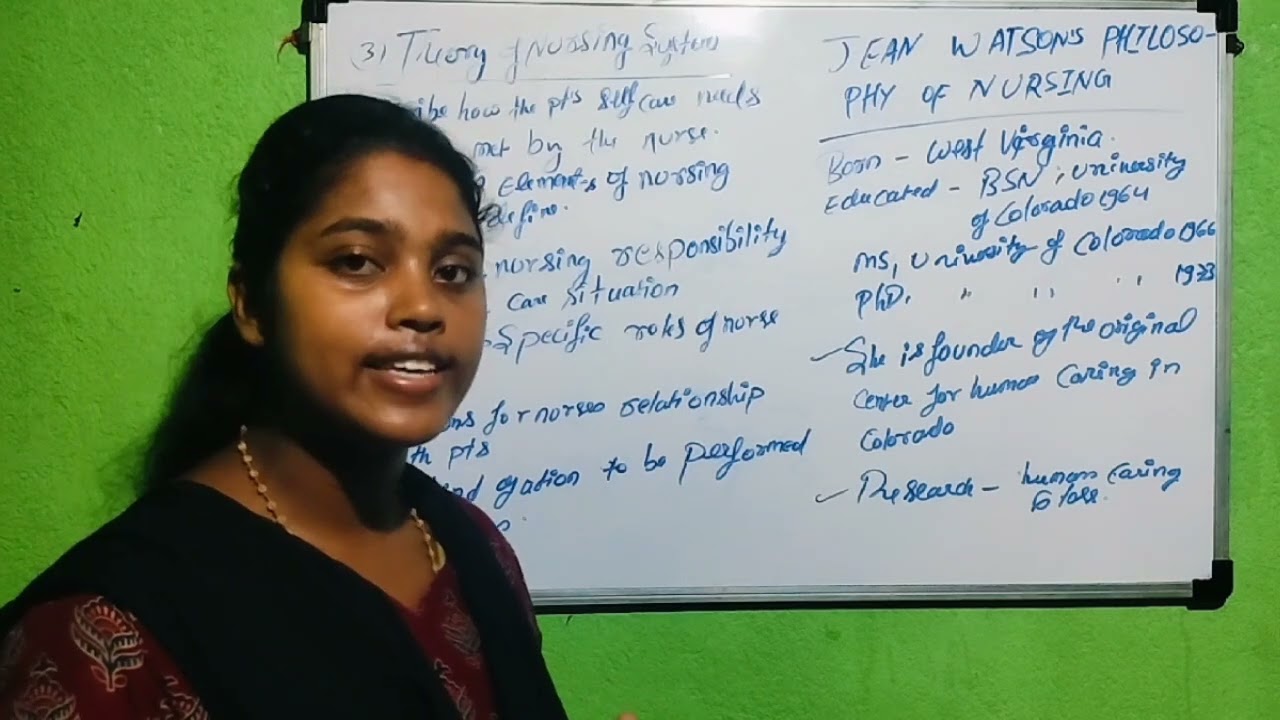 (3) Theory of Nursing System
ibe how the pts self care needs
met by the nurse.
Elements of nursing
define.
nursing responsibility
care situation
Specific roles of nurse
ons for nurses relationship
th pts
nd of action to be performed
JEAN WATSON'S PHILOSO-
PHY OF NURSING
Born - West Virginia.
Educated - BSN, University
of Colorado 1964
MS, University of Colorado 1966
PhD, " " " 1973
✓ She is founder of the original
Center for human Caring in
Colorado
✓ Research - human caring
& loss.